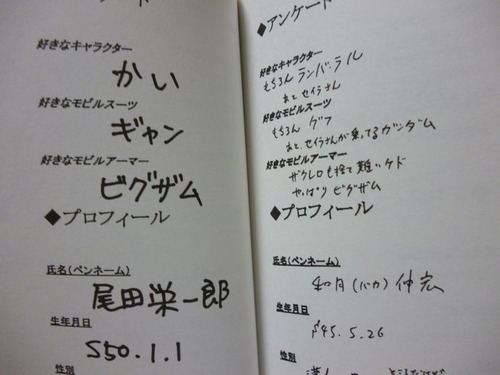 ード
好きなキャラクター
かい
好きなモビルスーツ
ギャン
好きなモビルアーマー
ビグザム
◆プロフィール
氏名(ペンネーム)
尾田栄一郎
生年月日
S50.1.1
性別
◆アンケート
好きなキャラクター
もちろん ランバ・ラル
あと セイラさん
好きなモビルスーツ
もちろん グフ
あと、セイラさんが乗ってるガンダム
好きなモビルアーマー
ザクレロも捨て難いケド
やっぱり ビグザム
◆プロフィール
氏名(ペンネーム)
和月(バカ)伸宏
生年月日
S45.5.26
性別